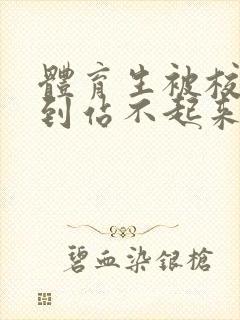 體育生被校
到佔不起來
碧血染銀槍